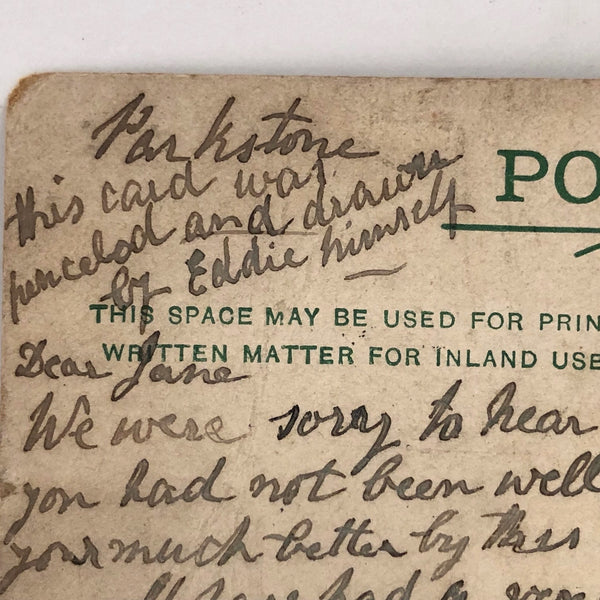 Parkstone
this card was
pencelod and drawn
by Eddie himself
PO
THIS SPACE MAY BE USED FOR PRIN
WRITTEN MATTER FOR INLAND USE
Dear Jane
We were sorry to hear
you had not been well
your much better by this
had a